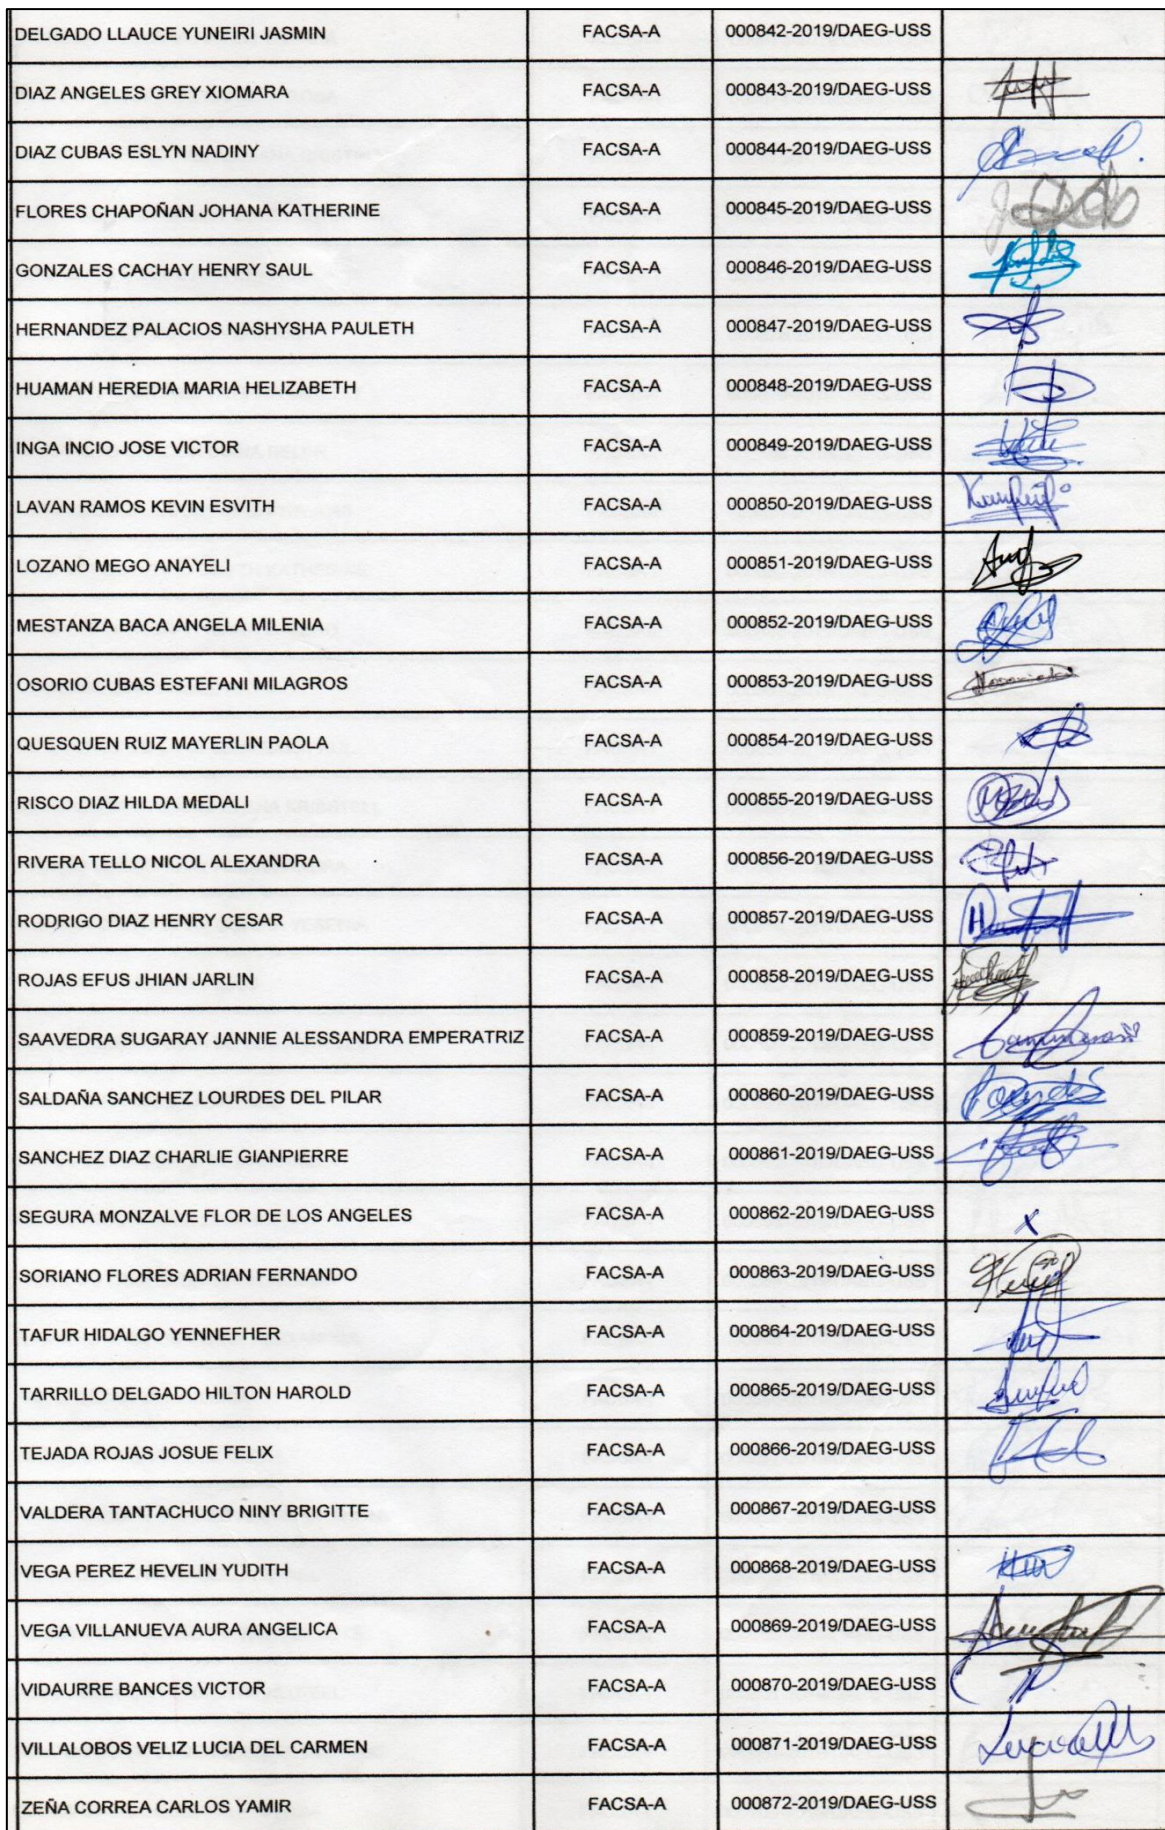 DELGADO LLAUCE YUNEIRI JASMIN FACSA-A 000842-2019/DAEG-USS
DIAZ ANGELES GREY XIOMARA FACSA-A 000843-2019/DAEG-USS
DIAZ CUBAS ESLYN NADINY FACSA-A 000844-2019/DAEG-USS
FLORES CHAPOÑAN JOHANA KATHERINE FACSA-A 000845-2019/DAEG-USS
GONZALES CACHAY HENRY SAUL FACSA-A 000846-2019/DAEG-USS
HERNANDEZ PALACIOS NASHYSHA PAULETH FACSA-A 000847-2019/DAEG-USS
HUAMAN HEREDIA MARIA HELIZABETH FACSA-A 000848-2019/DAEG-USS
INGA INCIO JOSE VICTOR FACSA-A 000849-2019/DAEG-USS
LAVAN RAMOS KEVIN ESVITH FACSA-A 000850-2019/DAEG-USS
LOZANO MEGO ANAYELI FACSA-A 000851-2019/DAEG-USS
MESTANZA BACA ANGELA MILENIA FACSA-A 000852-2019/DAEG-USS
OSORIO CUBAS ESTEFANI MILAGROS FACSA-A 000853-2019/DAEG-USS
QUESQUEN RUIZ MAYERLIN PAOLA FACSA-A 000854-2019/DAEG-USS
RISCO DIAZ HILDA MEDALI FACSA-A 000855-2019/DAEG-USS
RIVERA TELLO NICOL ALEXANDRA FACSA-A 000856-2019/DAEG-USS
RODRIGO DIAZ HENRY CESAR FACSA-A 000857-2019/DAEG-USS
ROJAS EFUS JHIAN JARLIN FACSA-A 000858-2019/DAEG-USS
SAAVEDRA SUGARAY JANNIE ALESSANDRA EMPERATRIZ FACSA-A 000859-2019/DAEG-USS
SALDAÑA SANCHEZ LOURDES DEL PILAR FACSA-A 000860-2019/DAEG-USS
SANCHEZ DIAZ CHARLIE GIANPIERRE FACSA-A 000861-2019/DAEG-USS
SEGURA MONZALVE FLOR DE LOS ANGELES FACSA-A 000862-2019/DAEG-USS X
SORIANO FLORES ADRIAN FERNANDO FACSA-A 000863-2019/DAEG-USS
TAFUR HIDALGO YENNEFHER FACSA-A 000864-2019/DAEG-USS
TARRILLO DELGADO HILTON HAROLD FACSA-A 000865-2019/DAEG-USS
TEJADA ROJAS JOSUE FELIX FACSA-A 000866-2019/DAEG-USS
VALDERA TANTACHUCO NINY BRIGITTE FACSA-A 000867-2019/DAEG-USS
VEGA PEREZ HEVELIN YUDITH FACSA-A 000868-2019/DAEG-USS
VEGA VILLANUEVA AURA ANGELICA FACSA-A 000869-2019/DAEG-USS
VIDAURRE BANCES VICTOR FACSA-A 000870-2019/DAEG-USS
VILLALOBOS VELIZ LUCIA DEL CARMEN FACSA-A 000871-2019/DAEG-USS
ZEÑA CORREA CARLOS YAMIR FACSA-A 000872-2019/DAEG-USS